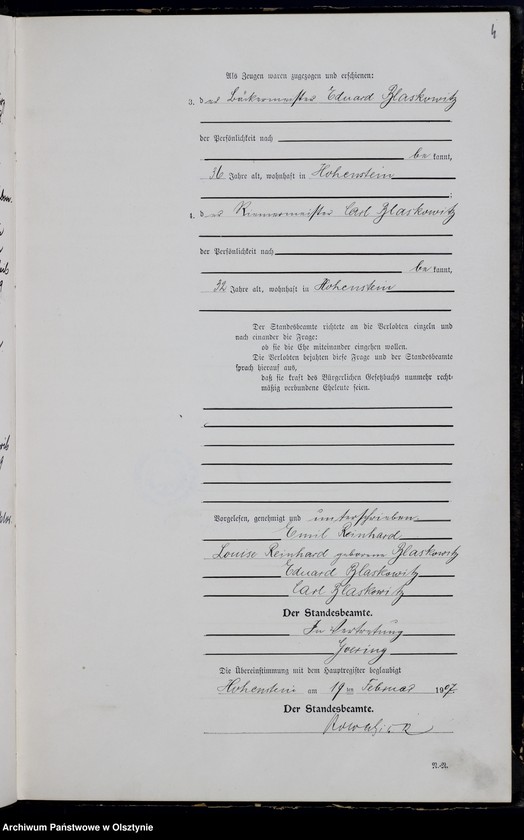 4
Als Zeugen waren zugezogen und erschienen:
3. der Bäckermeister Eduard Blaskowitz
der Persönlichkeit nach
be kannt,
36 Jahre alt, wohnhaft in Hohenstein
;
4. der Riemermeister Carl Blaskowitz
der Persönlichkeit nach
be kannt,
32 Jahre alt, wohnhaft in Hohenstein
Der Standesbeamte richtete an die Verlobten einzeln und
nach einander die Frage:
ob sie die Ehe miteinander eingehen wollen.
Die Verlobten bejahten diese Frage und der Standesbeamte
sprach hierauf aus,
daß sie kraft des Bürgerlichen Gesetzbuchs nunmehr recht-
mäßig verbundene Eheleute seien.
Vorgelesen, genehmigt und unterschrieben
Emil Reinhard
Louise Reinhard geborene Blaskowitz
Eduard Blaskowitz
Carl Blaskowitz
Der Standesbeamte.
In Vertretung
Die Übereinstimmung mit dem Hauptregister beglaubigt
Hohenstein am 19 ten Februar 1907
Der Standesbeamte.
Archiwum Państwowe w Olsztynie